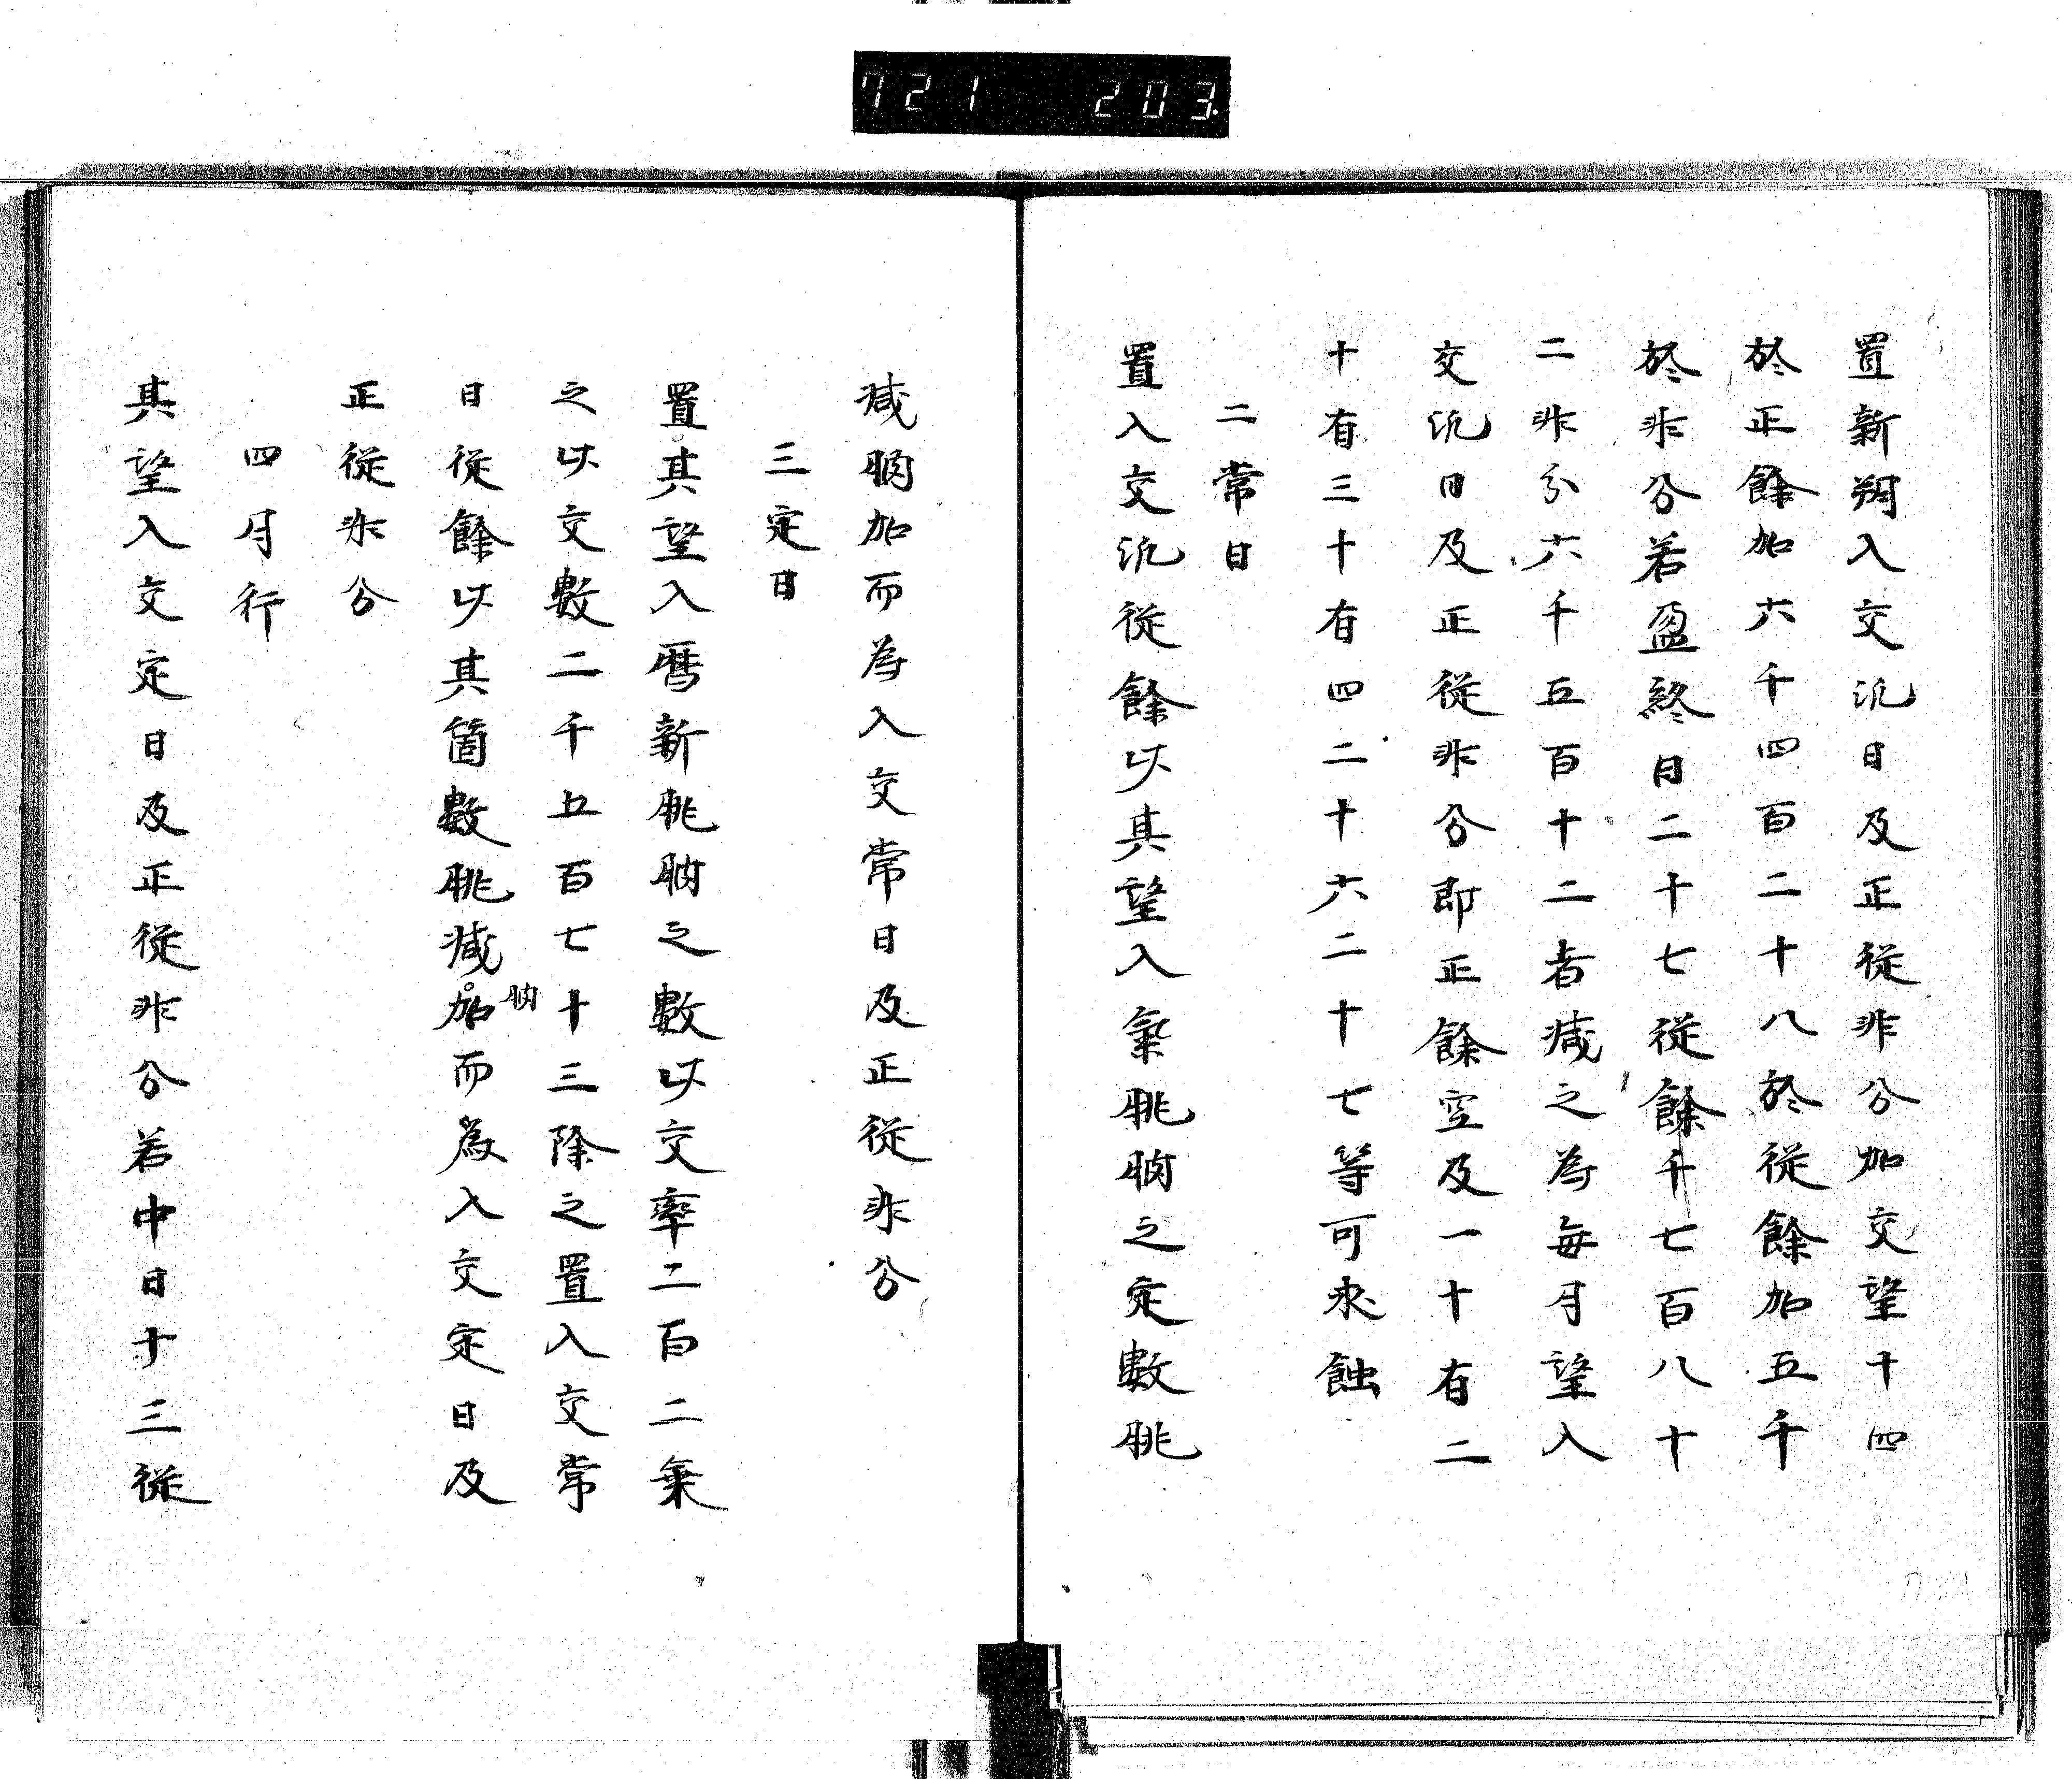 721 203
置新朔入交汎日及正從非分加交望十四
於正餘加六千四百二十八於從餘加五千
於非分若盈終日二十七從餘千七百八十
二非分六千五百十二者減之為每月望入
交汎日及正從非分即正餘空及一十有二
十有三十有四二十六二十七等可求蝕
二常日
置入交汎從餘以其望入氣朓朒之定數朓
減朒加而為入交常日及正從非分
三定日
置其望入曆新朓朒之數以交率二百二乗
之以交數二千五百七十三除之置入交常
日從餘以其箇數朓減朒加而為入交定日及
正從非分
四月行
其望入交定日及正從非分若中日十三從